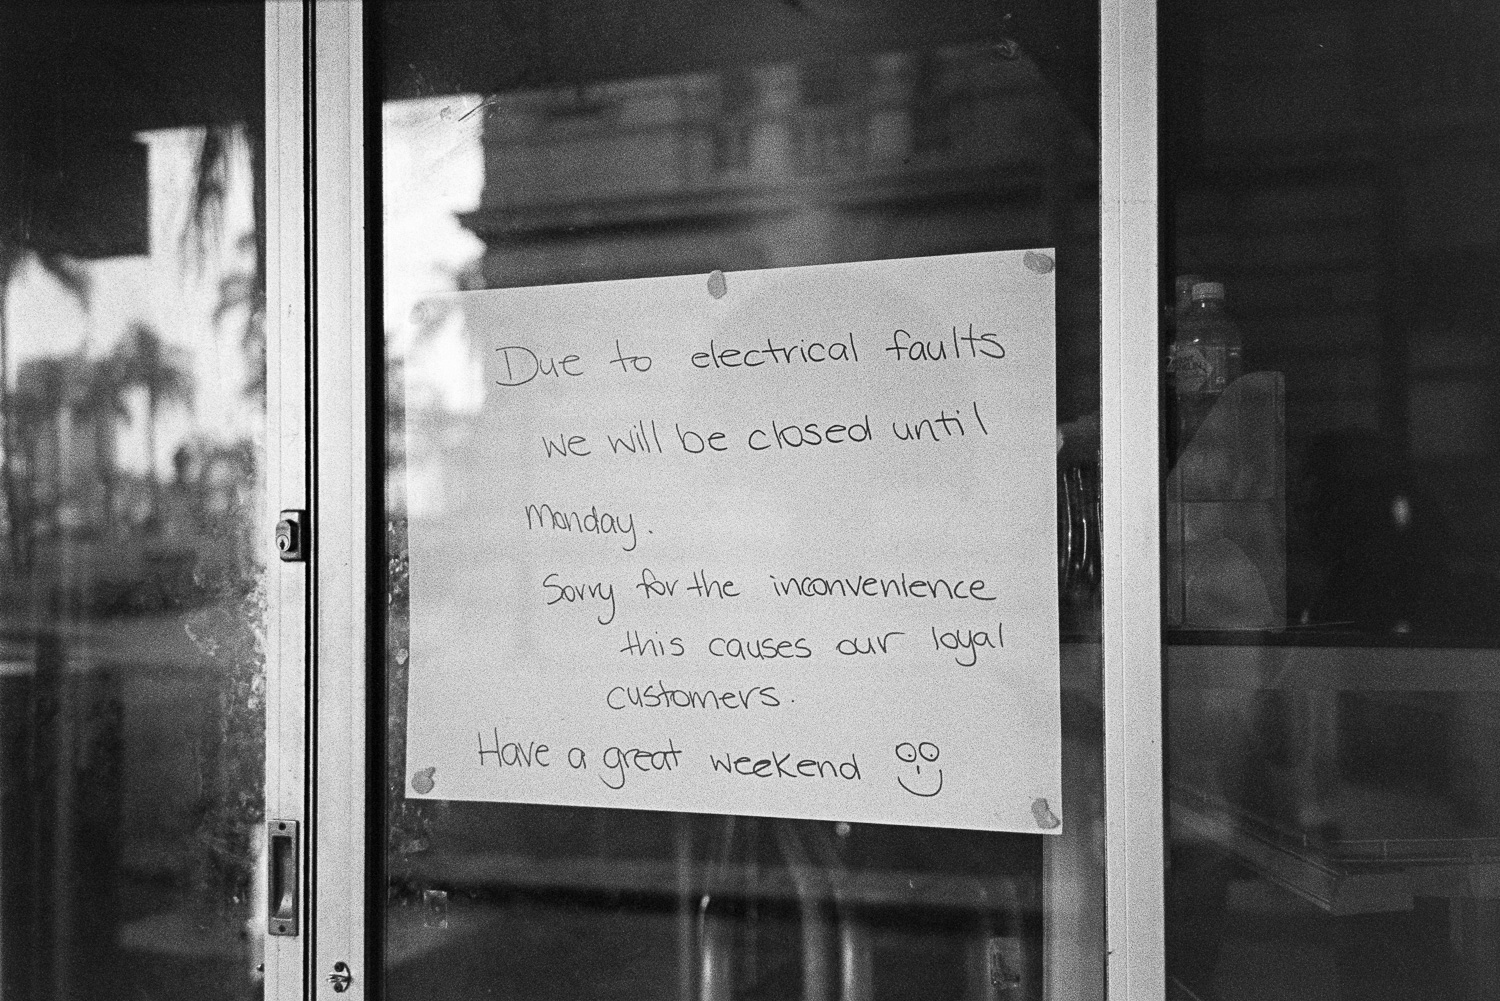 Due to electrical faults
we will be closed until
Monday.
Sorry for the inconvenience
this causes our loyal
customers.
Have a great weekend